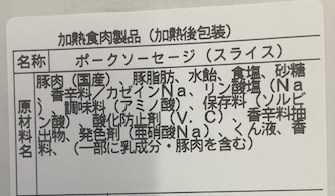 加熱食肉製品（加熱後包装）
名称 ポークソーセージ（スライス）
原材料名
豚肉（国産）、豚脂肪、水飴、食塩、砂糖
、香辛料／カゼインNa、リン酸塩（Na
）、調味料（アミノ酸）、保存料（ソルビ
ン酸）、酸化防止剤（V．C）、香辛料抽
出物、発色剤（亜硝酸Na）、くん液、香
料、（一部に乳成分・豚肉を含む）